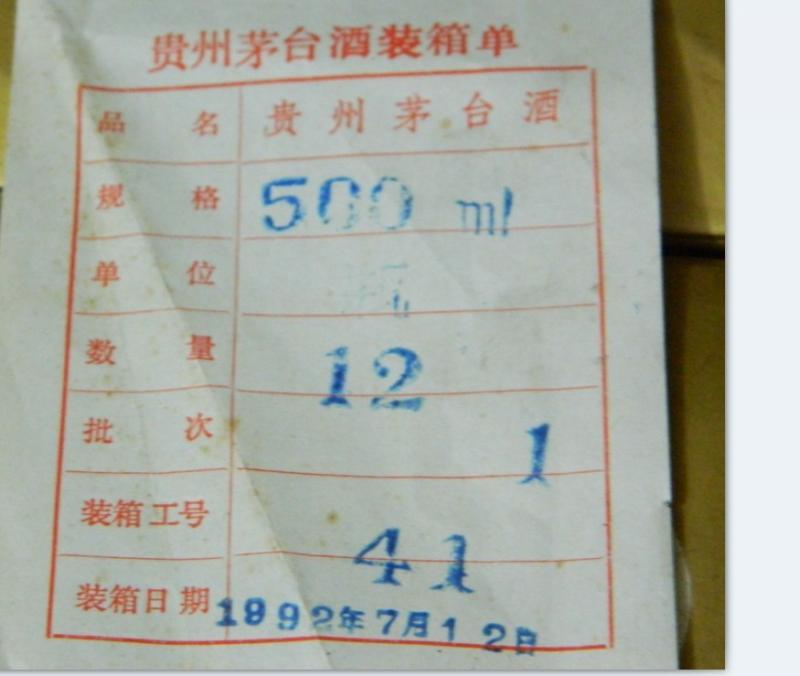 贵州茅台酒装箱单
品名 贵州茅台酒
规格 500 ml
单位 瓶
数量 12
批次 1
装箱工号 41
装箱日期 1992年7月12日